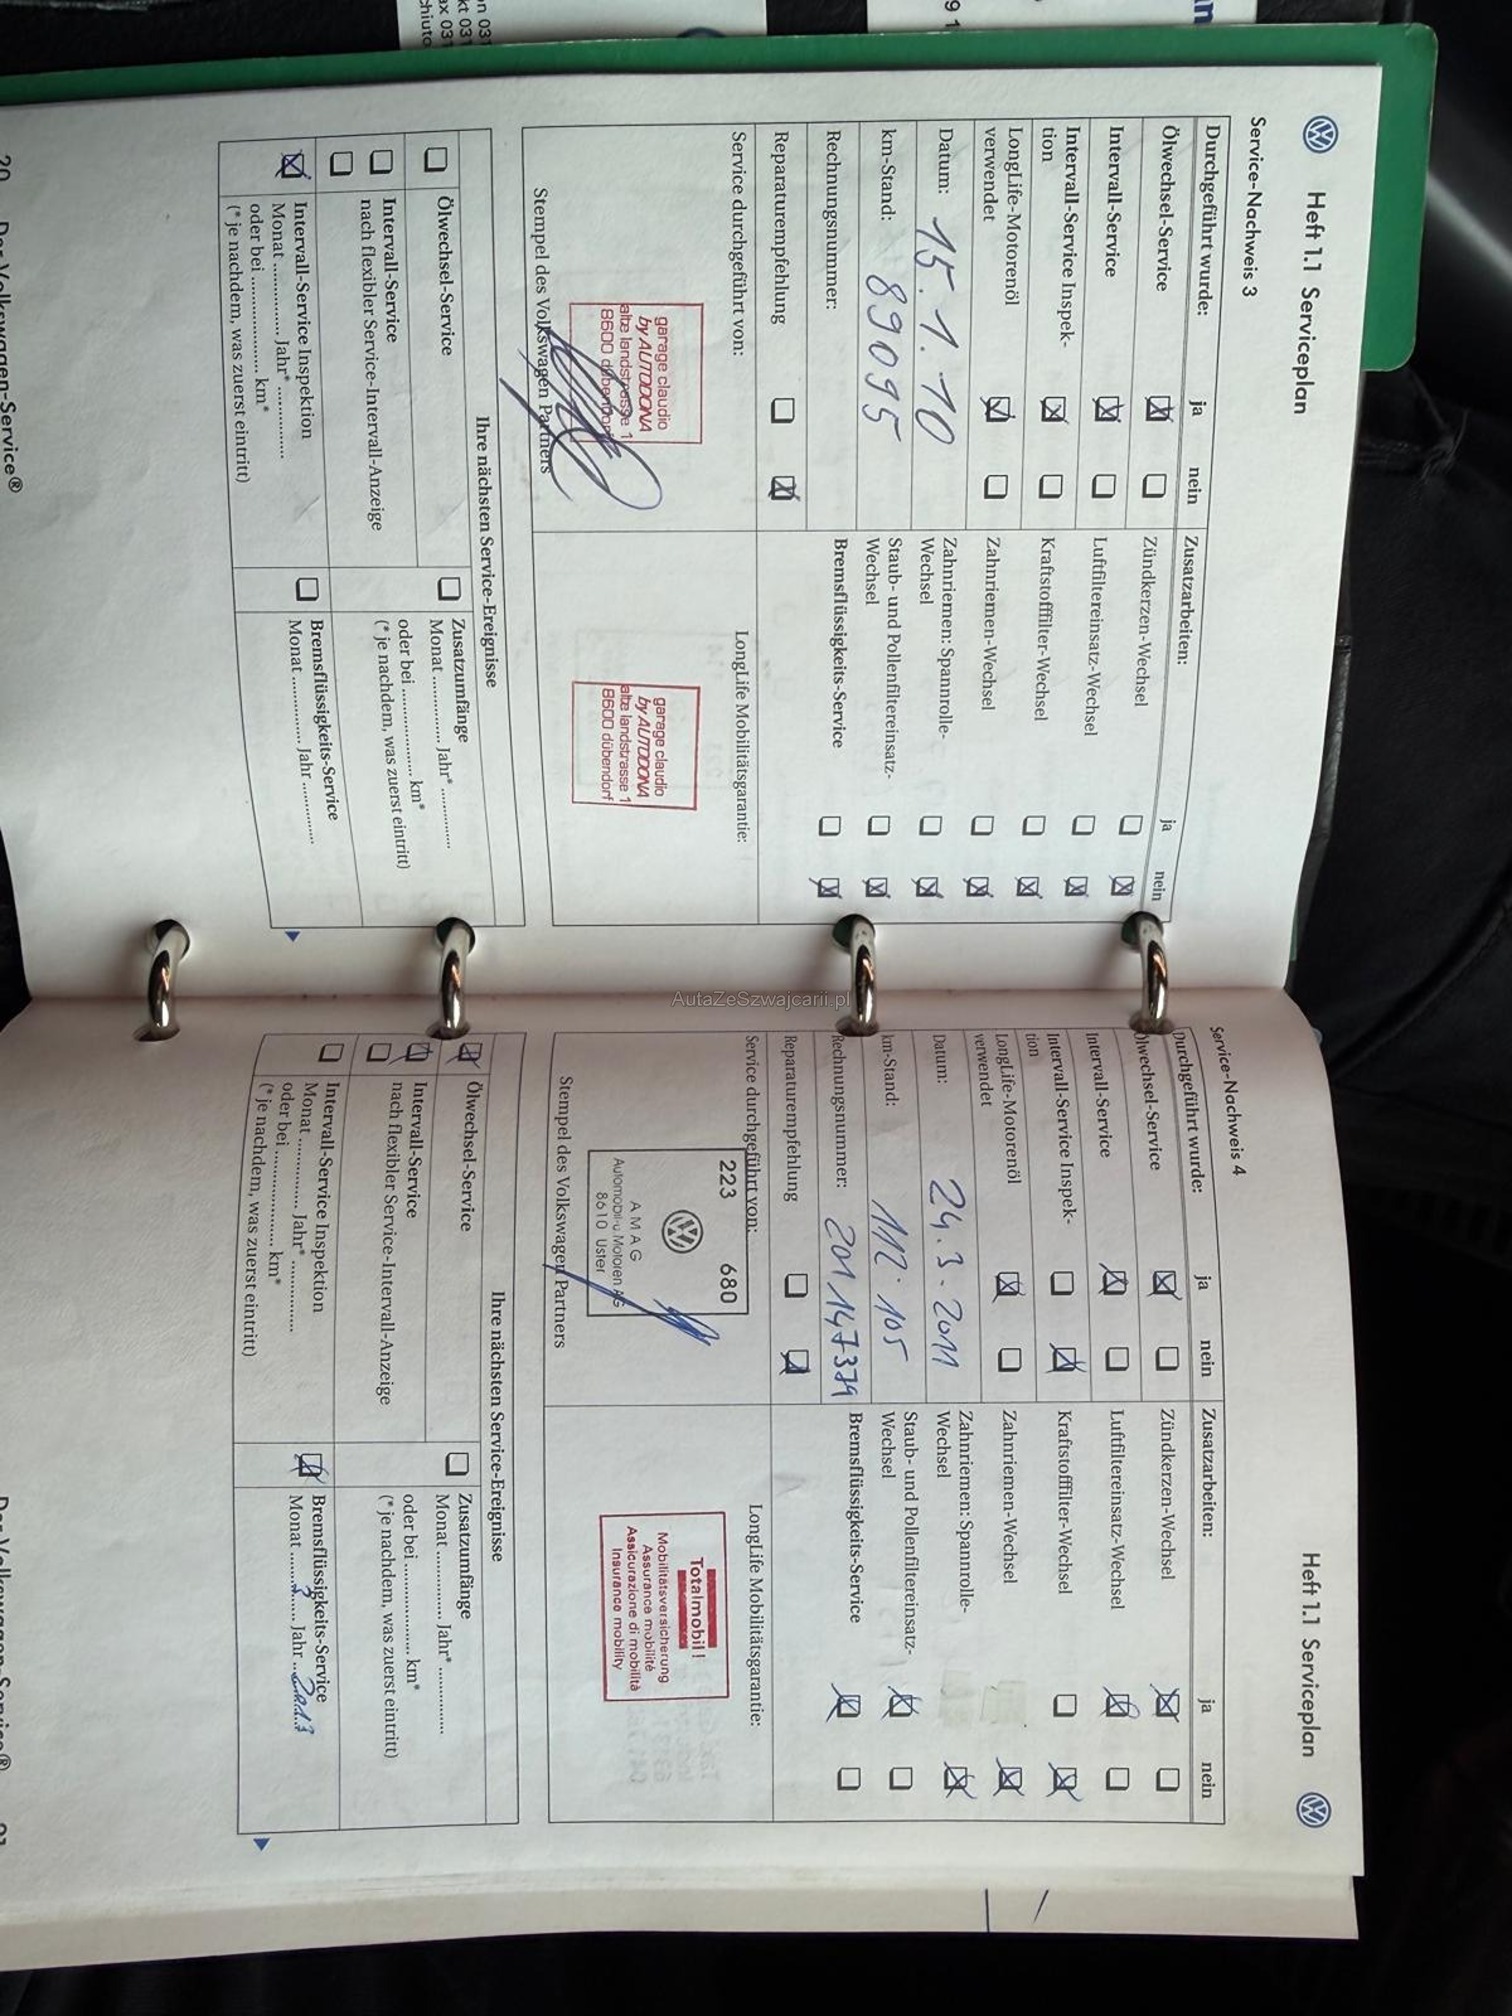 Heft 1.1 Serviceplan
Service-Nachweis 3
Durchgeführt wurde:
ja
nein
Ölwechsel-Service
Intervall-Service
Intervall-Service Inspek-
tion
LongLife-Motorenöl
verwendet
Datum: 15.1.10
km-Stand: 89095
Rechnungsnummer:
Reparaturempfehlung
Zusatzarbeiten:
ja
nein
Zündkerzen-Wechsel
Luftfiltereinsatz-Wechsel
Kraftstofffilter-Wechsel
Zahnriemen-Wechsel
Zahnriemen: Spannrolle-
Wechsel
Staub- und Pollenfiltereinsatz-
Wechsel
Bremsflüssigkeits-Service
Service durchgeführt von:
garage claudio
by AUTODONA
alte landstrasse 1
8600 dübendorf
Stempel des Volkswagen Partners
LongLife Mobilitätsgarantie:
garage claudio
by AUTODONA
alte landstrasse 1
8600 dübendorf
Ihre nächsten Service-Ereignisse
Ölwechsel-Service
Intervall-Service
nach flexibler Service-Intervall-Anzeige
Intervall-Service Inspektion
Monat ............ Jahr* ............
oder bei ................ km*
(* je nachdem, was zuerst eintritt)
Zusatzumfänge
Monat ............ Jahr* ............
oder bei ................ km*
(* je nachdem, was zuerst eintritt)
Bremsflüssigkeits-Service
Monat ............ Jahr ............
20
Der Volkswagen-Service®
AutaZeSzwajcarii.pl
Heft 1.1 Serviceplan
Service-Nachweis 4
Durchgeführt wurde:
ja
nein
Ölwechsel-Service
Intervall-Service
Intervall-Service Inspek-
tion
LongLife-Motorenöl
verwendet
Datum: 24.3.2011
km-Stand: 112.105
Rechnungsnummer: 201147379
Reparaturempfehlung
Zusatzarbeiten:
ja
nein
Zündkerzen-Wechsel
Luftfiltereinsatz-Wechsel
Kraftstofffilter-Wechsel
Zahnriemen-Wechsel
Zahnriemen: Spannrolle-
Wechsel
Staub- und Pollenfiltereinsatz-
Wechsel
Bremsflüssigkeits-Service
Service durchgeführt von:
223 680
AMAG
Automobil-u Motoren AG
8610 Uster
Stempel des Volkswagen Partners
LongLife Mobilitätsgarantie:
Totalmobil!
Mobilitätsversicherung
Assurance mobilité
Assicurazione di mobilità
Insurance mobility
Ihre nächsten Service-Ereignisse
Ölwechsel-Service
Intervall-Service
nach flexibler Service-Intervall-Anzeige
Intervall-Service Inspektion
Monat ............ Jahr* ............
oder bei ................ km*
(* je nachdem, was zuerst eintritt)
Zusatzumfänge
Monat ............ Jahr* ............
oder bei ................ km*
(* je nachdem, was zuerst eintritt)
Bremsflüssigkeits-Service
Monat ...3... Jahr ..2013